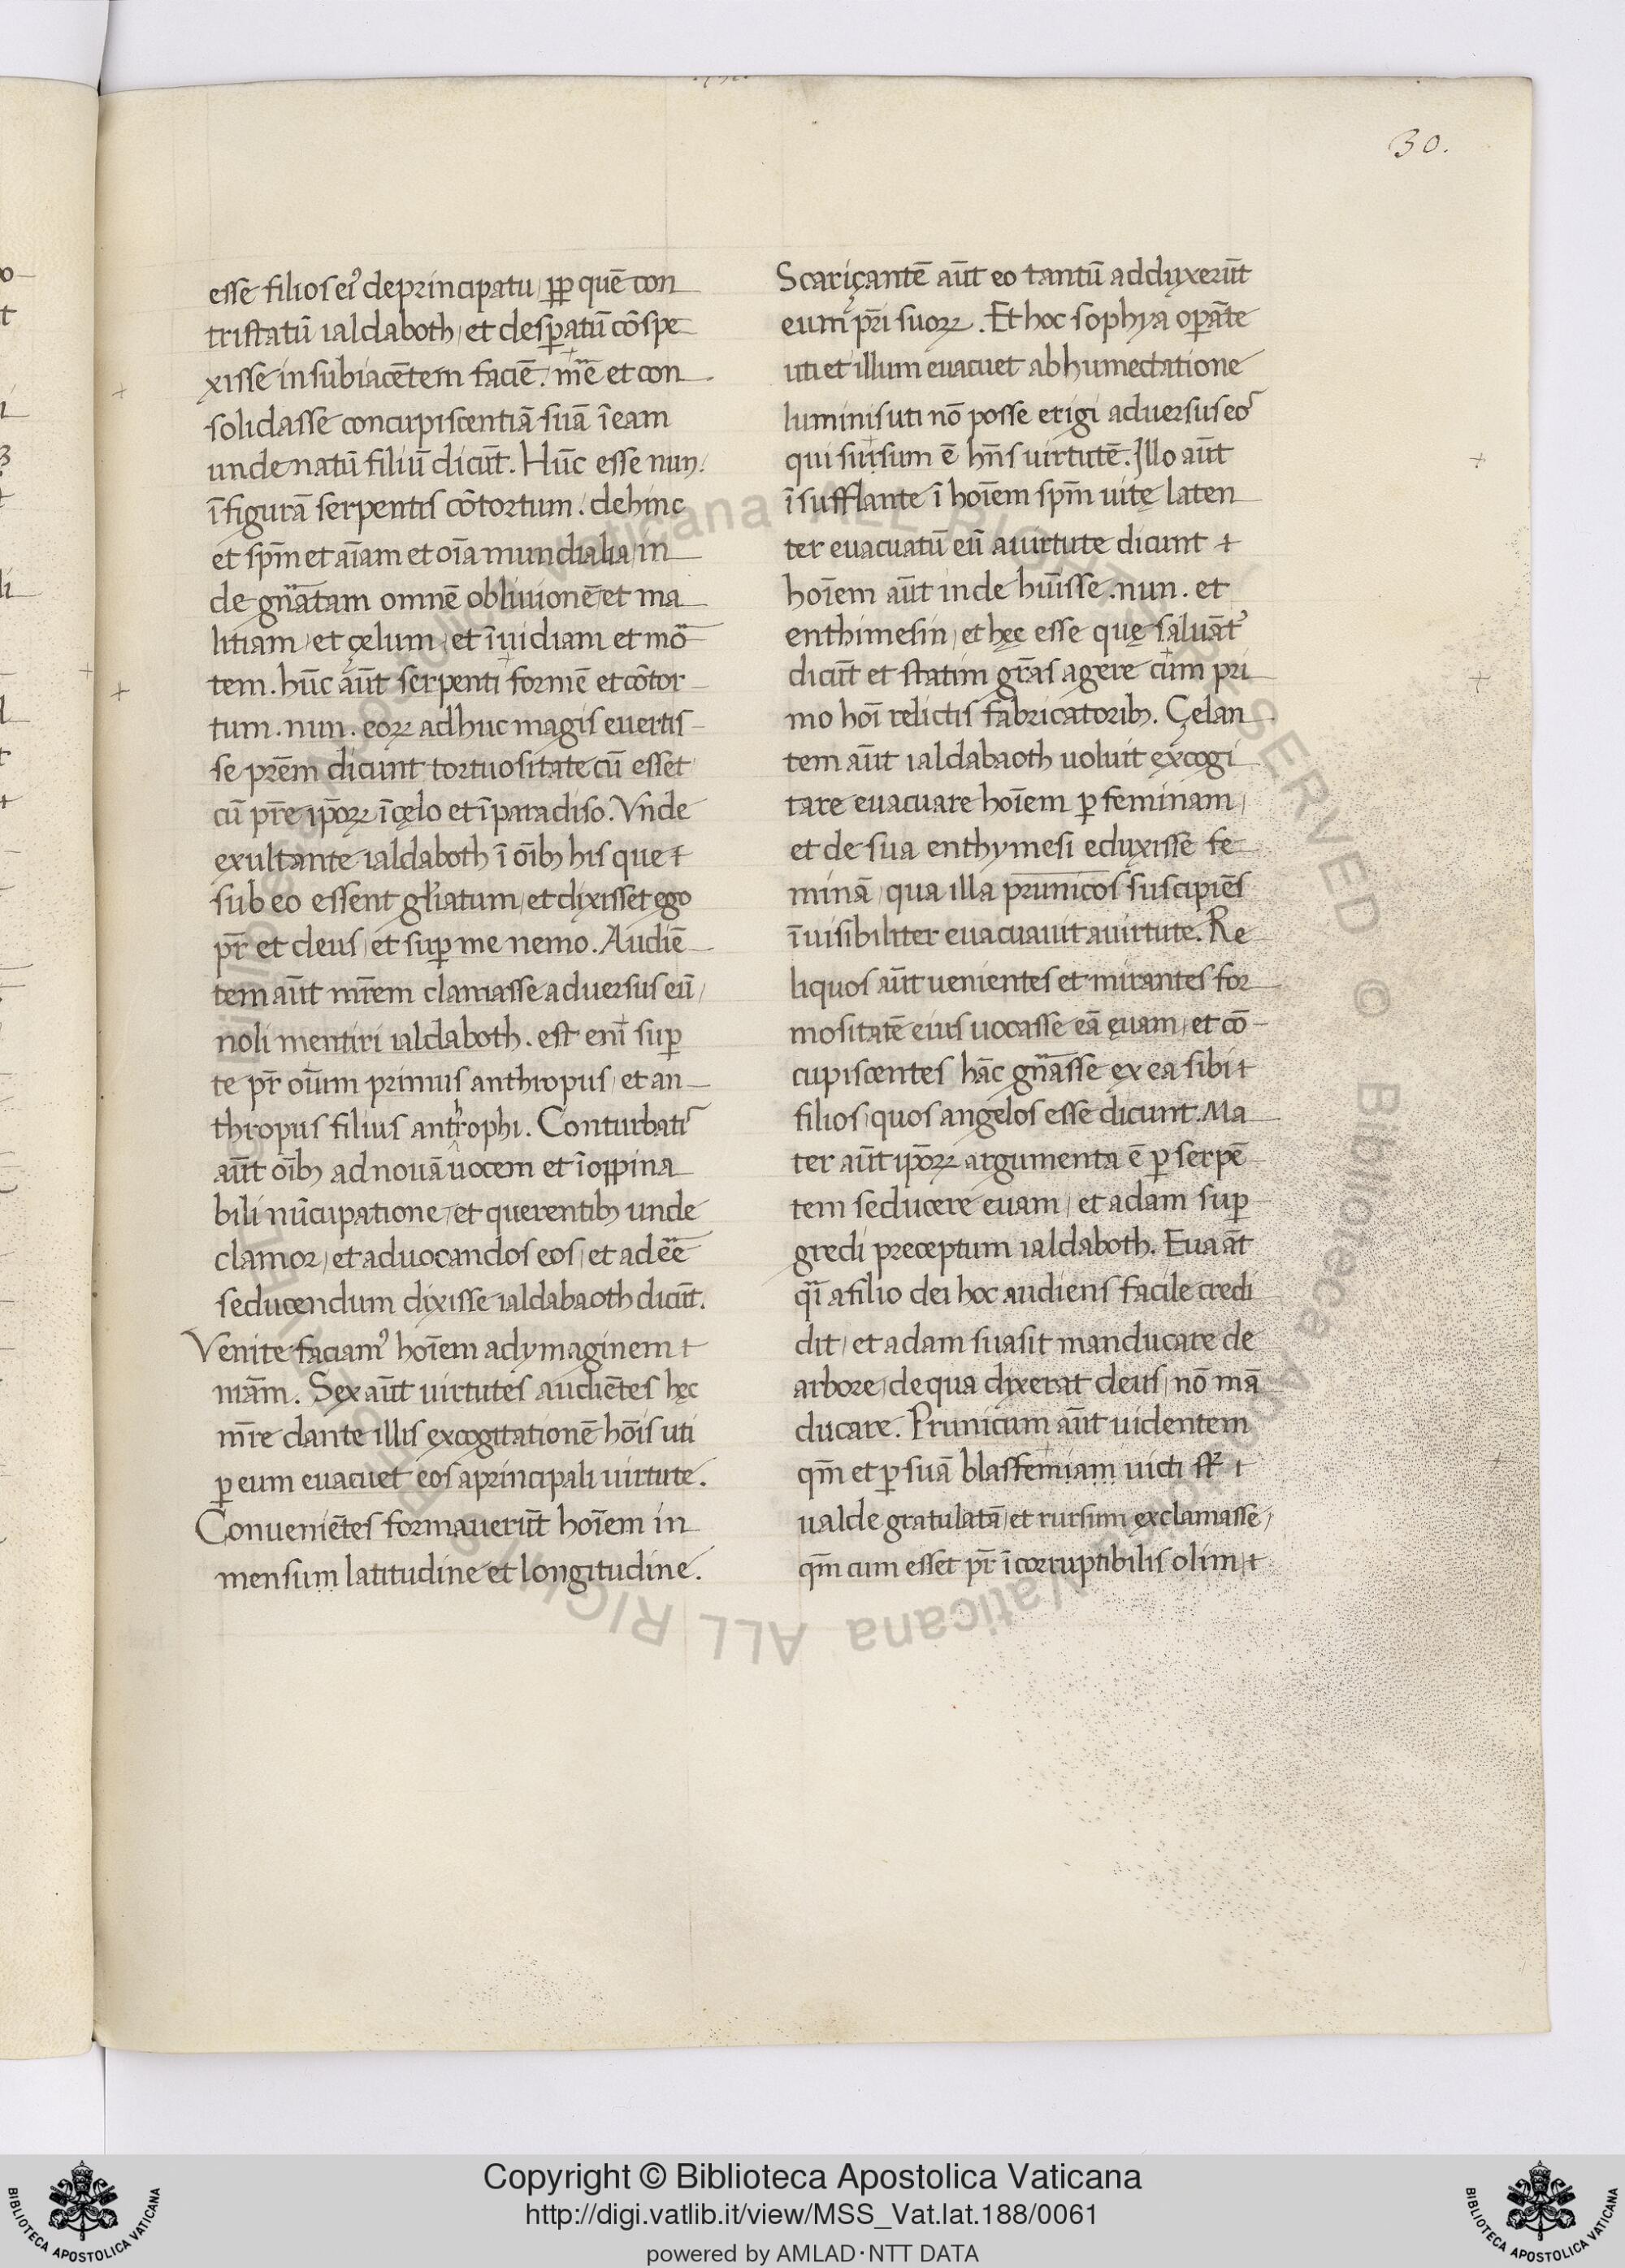 30.
esse filios ei᾽ de principatu, ꝓp quē con
tristatū ialdaboth, et desꝑatū cōspe
xisse in subiacētem faciē. mr̄e et con
solidasse concupiscentiā suā ī eam
unde natū filiū dicūt. Hūc esse nun.
ī figurā serpentis cōtortum. dehinc
et sp̄m et aīam et oīa mundialia, in
de gn̄atam omnē obliuionē, et ma
litiam, et çelum, et īuidiam et mō
tem. hūc aūt serpenti formē et cōtor
tum. nun. eoꝝ adhuc magis euertis
se prēm dicunt tortuositate cū esset
cū pr̄e ip̄oꝝ ī cęlo et ī paradiso. Vnde
exultante ialdaboth ī oīb; his que
sub eo essent gl̄iatum, et dixisset ego
pr̄ et deus, et suꝑ me nemo. Audiē
tem aūt mr̄em clamasse aduersus eū,
noli mentiri ialdaboth. est enī suꝑ
te pr̄ oīum primus anthropus, et an
thropus filius anthrophi. Conturbati᾽
aūt oīb; ad nouā uocem et ī oppina
bili nūcupatione, et querentib; unde
clamor, et aduocandos eos, et ad ēē
seducendum dixisse ialdabaoth dicūt.
Venite faciam᾽ hoīem ad ymaginem
nr̄am. Sex aūt uirtutes audiētes hęc
mr̄e dante illis excogitationē hoīs uti
ꝑ eum euacuet eos a principali uirtute.
Conueniētes formauerūt hoīem in
mensum latitudine et longitudine.
Scariçantē aūt eo tantū adduxerūt
eum pr̄i suoꝝ. Et hoc sophya oꝑāte
uti et illum euacuet ab humectatione
luminis uti nō posse erigi aduersus eo᾽
qui sursum ē hn̄s uirtutē. Illo aūt
īsufflante ī hoīem sp̄m uitę laten
ter euacuatū eū a uirtute dicunt
hoīem aūt inde huīsse .nun. et
enthimesin, et hęc esse quę saluāt᾽
dicūt et statim gr̄as agere cum pri
mo hoī relictis fabricatorib;. Çelan
tem aūt ialdabaoth uoluit excogi
tare euacuare hoīem ꝑ feminam,
et de sua enthymesi eduxisse fe
minā, qua illa prunicos suscipiēs
īuisibiliter euacuauit a uirtute. Re
liquos aūt uenientes et mirantes for
mositatē eius uocasse eā euam, et cō
cupiscentes hāc gn̄asse ex ea sibi
filios, quos angelos esse dicunt. Ma
ter aūt ip̄oꝝ argumenta ē ꝑ serpē
tem seducere euam, et adam suꝑ
gredi preceptum ialdaboth. Eua āt
q̄i a filio dei hoc audiens facile credi
dit, et adam suasit manducare de
arbore, de qua dixerat deus, nō mā
ducare. Prunicum aūt uidentem
qm̄ et ꝑ suā blasfemiam uicti sr̄
ualde gratulatā, et rursum exclamasse,
qm̄ cum esset pr̄ īcorruptibilis olim,
Copyright © Biblioteca Apostolica Vaticana
http://digi.vatlib.it/view/MSS_Vat.lat.188/0061
powered by AMLAD·NTT DATA
BIBLIOTECA APOSTOLICA VATICANA
BIBLIOTECA APOSTOLICA VATICANA